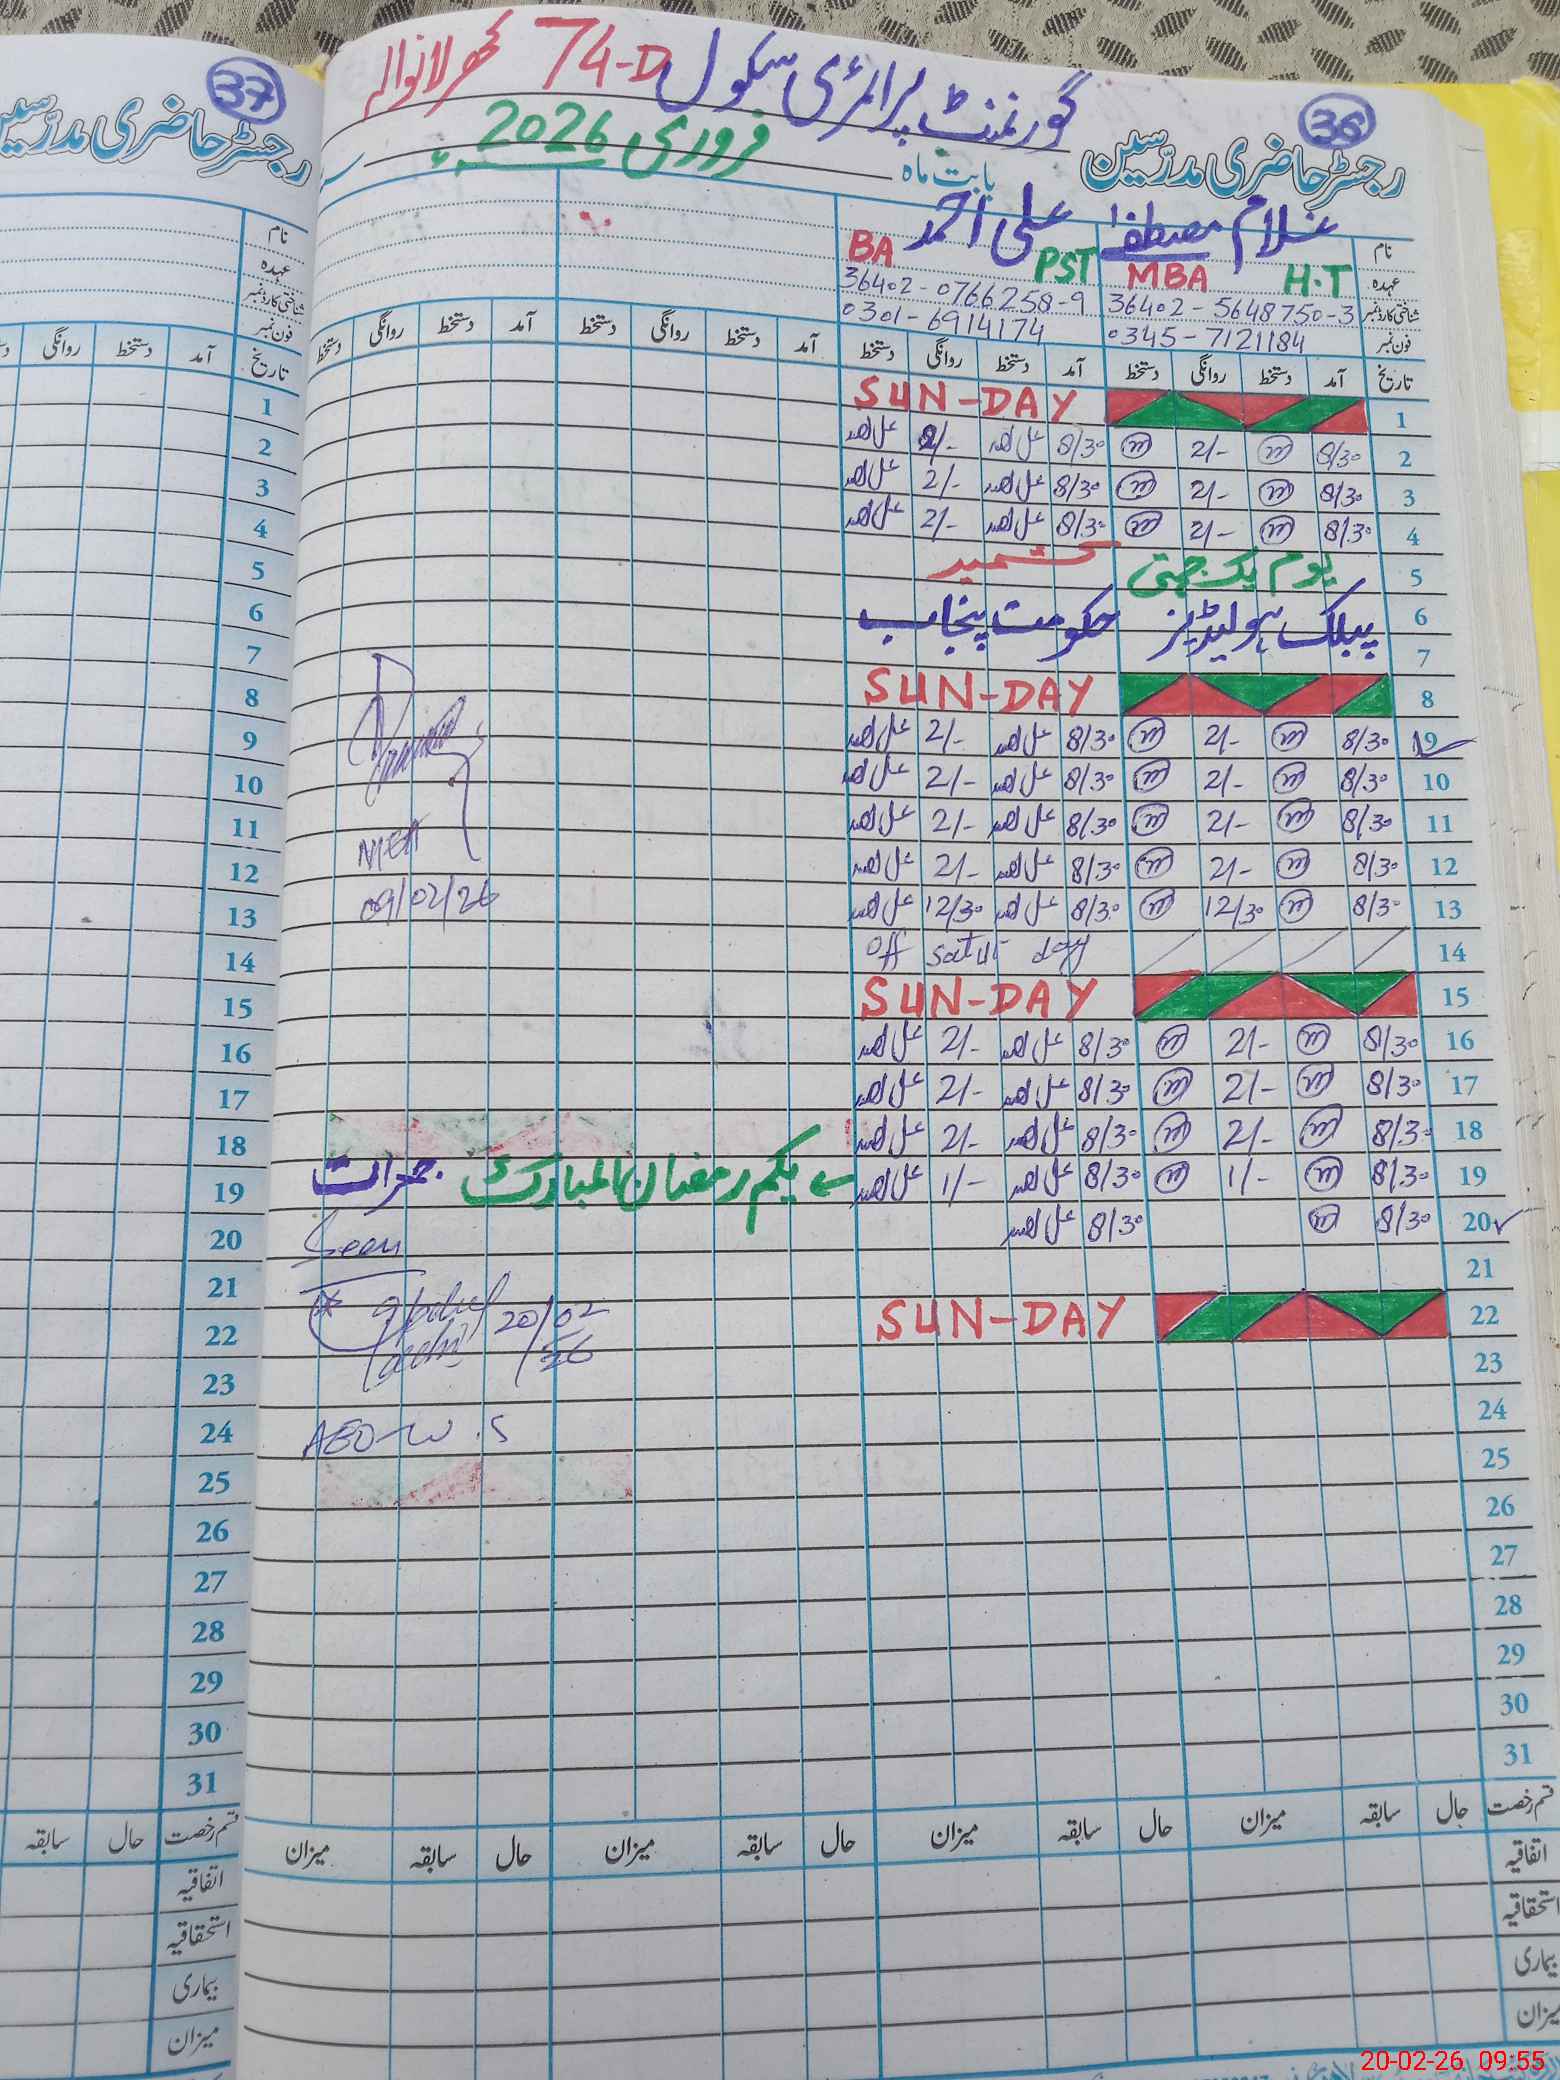 37
رجسٹر حاضری مدرّسین
36
رجسٹر حاضری مدرّسین
گورنمنٹ پرائمری سکول 74-D کھرلانوالہ
بابت ماہ فروری 2026ء
نام غلام مصطفےٰ علی احمد
عہدہ H.T MBA PST BA
شناختی کارڈ نمبر 36402-5648750-3 36402-0766258-9
فون نمبر 0345-7121184 0301-6914174
تاریخ آمد دستخط روانگی دستخط آمد دستخط روانگی دستخط آمد دستخط روانگی دستخط آمد دستخط روانگی دستخط
1 SUN-DAY
2 8/30 m 2/- m 8/30 علی احمد 2/- علی احمد
3 8/30 m 2/- m 8/30 علی احمد 2/- علی احمد
4 8/30 m 2/- m 8/30 علی احمد 2/- علی احمد
5 یوم یکجہتی کشمیر
6 پبلک ہولیڈیز حکومت پنجاب
7
8 SUN-DAY
9 8/30 m 2/- m 8/30 علی احمد 2/- علی احمد
10 8/30 m 2/- m 8/30 علی احمد 2/- علی احمد
11 8/30 m 2/- m 8/30 علی احمد 2/- علی احمد
12 8/30 m 2/- m 8/30 علی احمد 2/- علی احمد
13 8/30 m 12/30 m 8/30 علی احمد 12/30 علی احمد 09/02/26
14 off satur day
15 SUN-DAY
16 8/30 m 2/- m 8/30 علی احمد 2/- علی احمد
17 8/30 m 2/- m 8/30 علی احمد 2/- علی احمد
18 8/30 m 2/- m 8/30 علی احمد 2/- علی احمد
19 8/30 m 1/- m 8/30 علی احمد 1/- علی احمد ← یکم رمضان المبارک جمعرات
20 8/30 m 8/30 علی احمد Seen
21
22 SUN-DAY 20/02/26
23
24 AEO-W.S
25
26
27
28
29
30
31
قسم رخصت حال سابقہ میزان حال سابقہ میزان حال سابقہ میزان حال سابقہ میزان
اتفاقیہ
استحقاقیہ
بیماری
میزان
نام
عہدہ
شناختی کارڈ نمبر
فون نمبر
تاریخ آمد دستخط روانگی
1
2
3
4
5
6
7
8
9
10
11
12
13
14
15
16
17
18
19
20
21
22
23
24
25
26
27
28
29
30
31
قسم رخصت حال سابقہ
اتفاقیہ
استحقاقیہ
بیماری
میزان
20-02-26 09:55